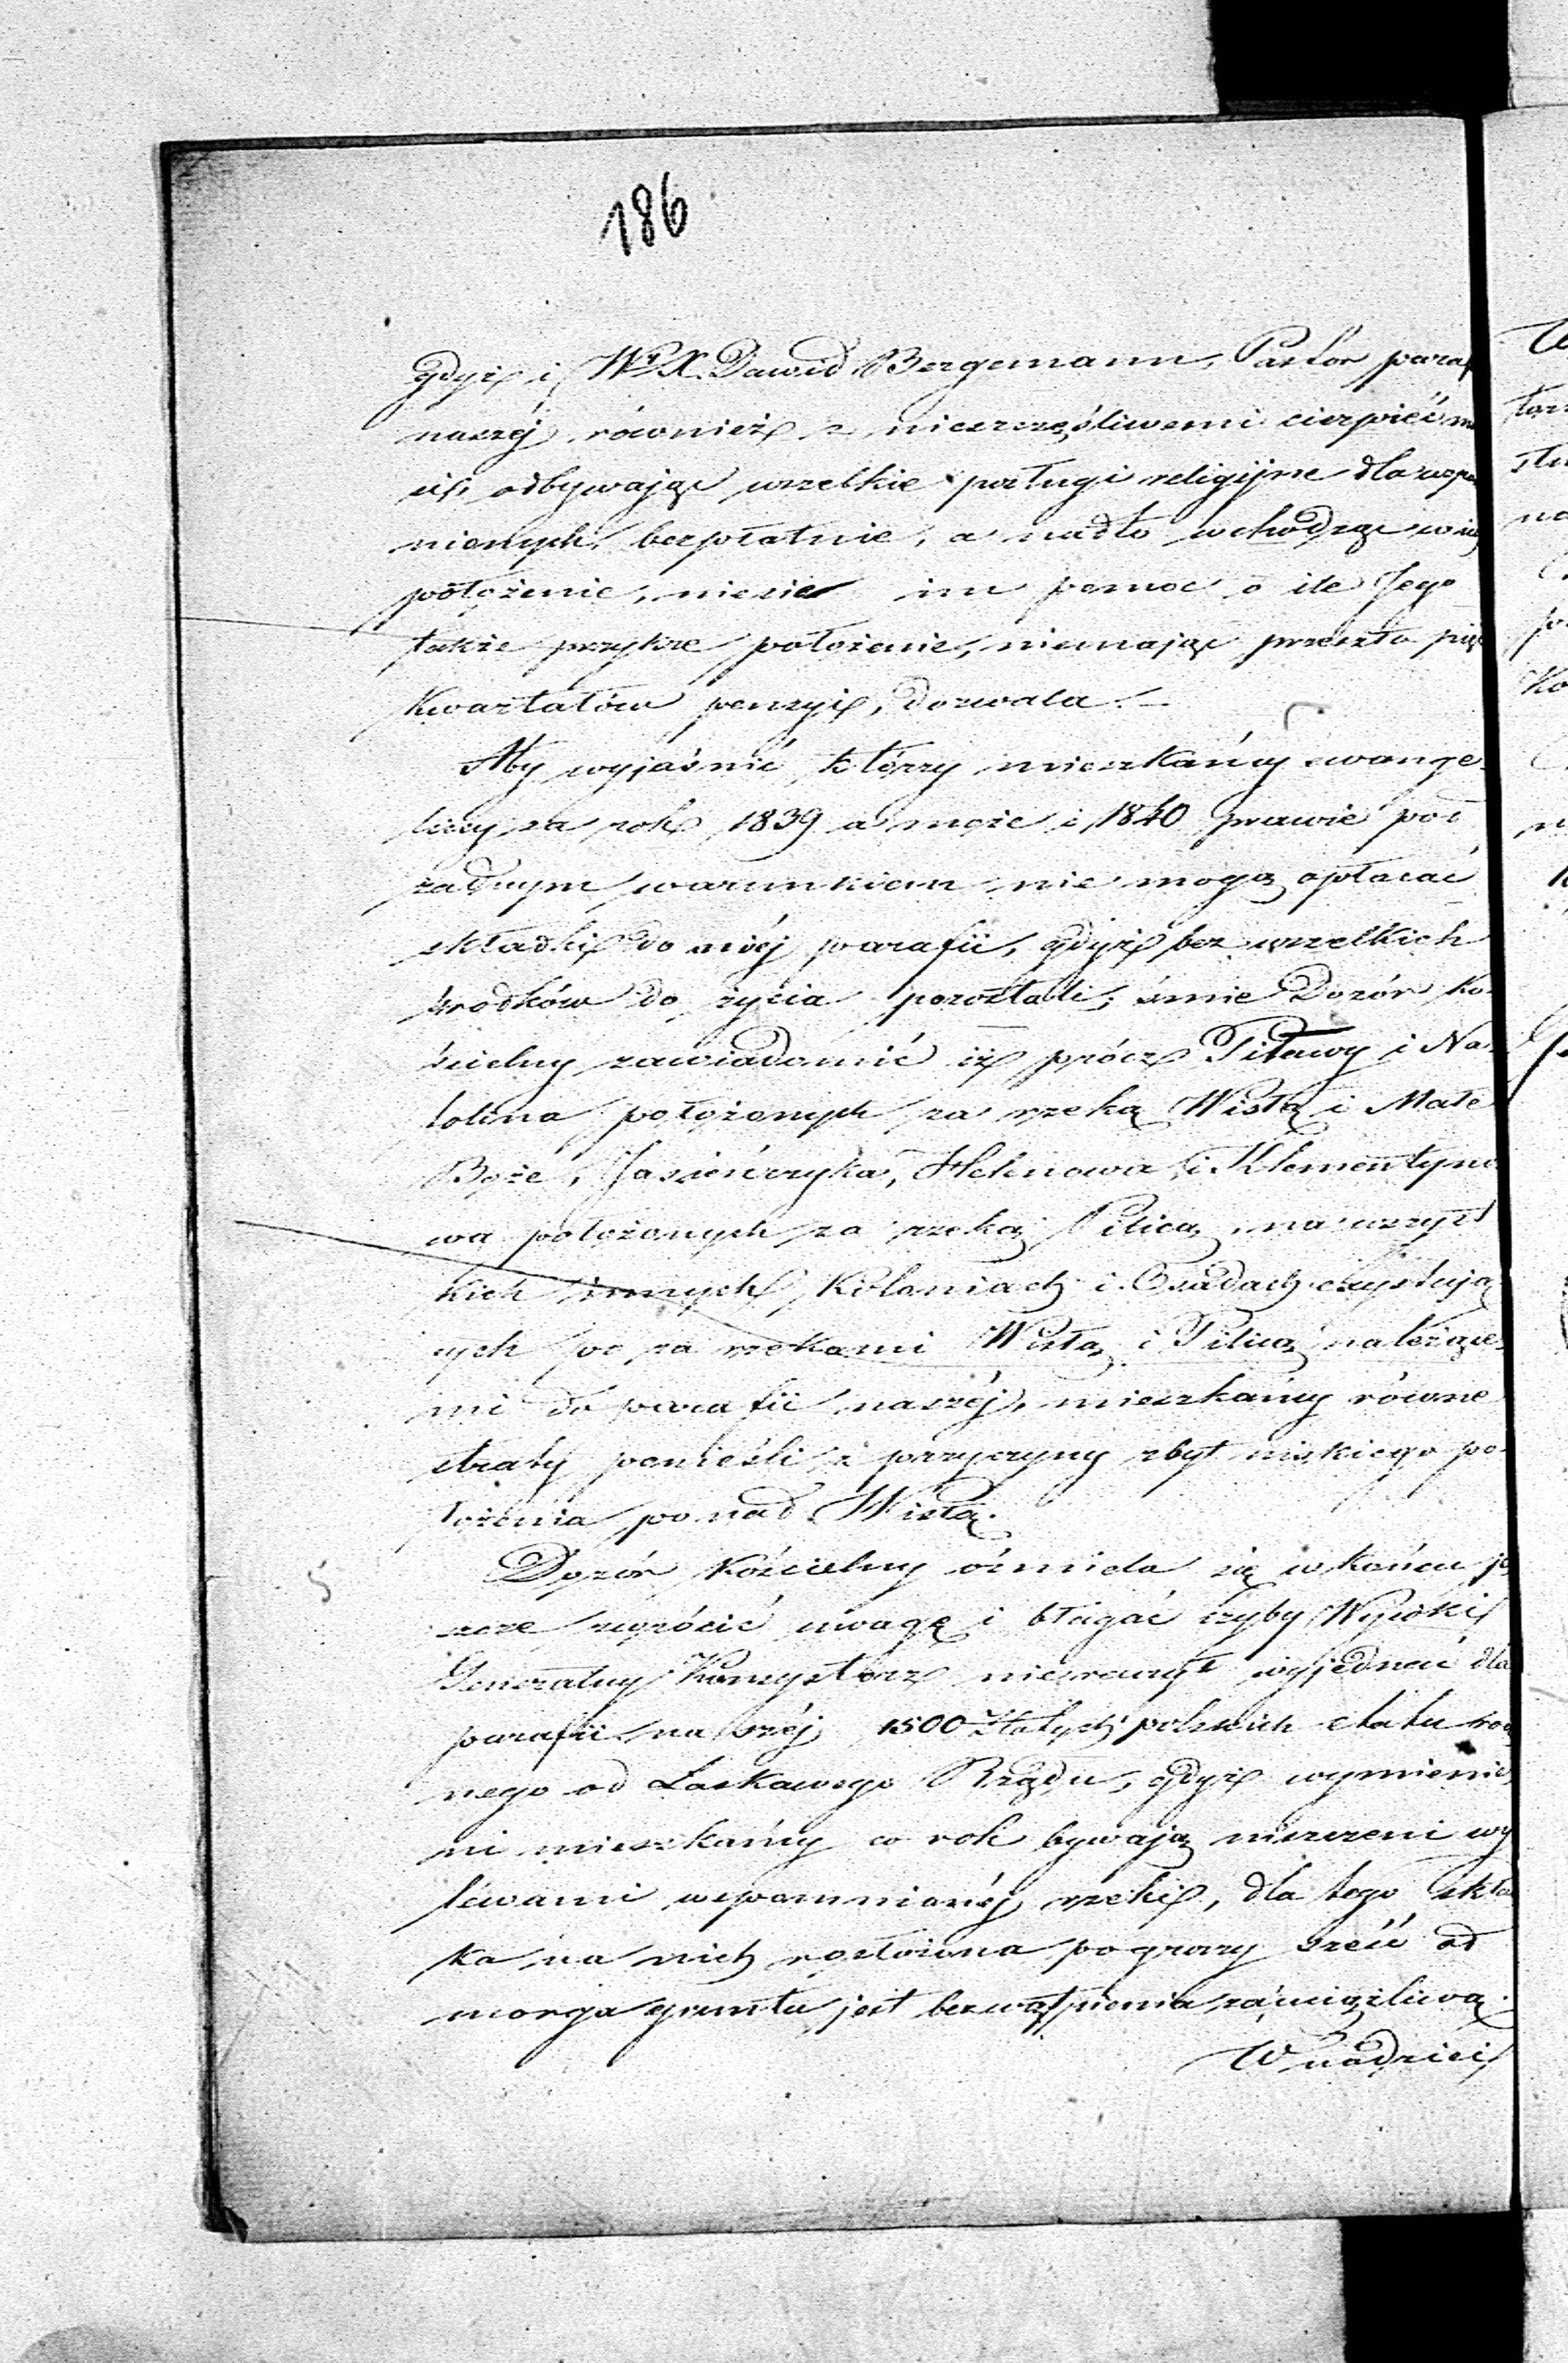 186
gdyż i WX. Dawid Bergemann, Pastor paraf
naszéj również z nieszczęśliwemi cierpieć mu
si, odbywając wszelkie posługi religijne dla wspo
nionych bezpłatnie, a nadto wchodząc w ich
położenie, niesie im pomoc o ile Jego
także przykre położenie, niemając przeszło pięć
kwartałów pensyi, dozwala. –
Aby wyjaśnić którzy mieszkańcy ewange-
liccy za rok 1839 a może i 1840 prawie pod
żadnym warunkiem nie mogą opłacać
składki do méj parafii, gdyż bez wszelkich
środków do życia pozostali; śmie Dozór Ko-
ścielny zawiadomić iż prócz Piławy i Na-
tolina położonych za rzeką Wisłą i Małe
Boże, Jasieńczyka, Helenowa i Klementyno
wa położonych za rzeką Pilicą, na wszyst
kich innych Koloniach i Osadach exystują
cych po za rzekami Wisłą i Pilicą należące
mi do parafii naszéj, mieszkańcy równe
straty ponieśli z przyczyny zbyt niskiego po-
łożenia ponad Wisłą.
Dozór Kościelny ośmiela się w końcu je
szcze zwrócić uwagę i błagać czyby Wysoki
Generalny Konsystorz nieraczył wyjednać dla
parafii naszéj 1500 Złotych polskich etatu rocz
nego od Łaskawego Rządu, gdyż wymienie
ni mieszkańcy co rok bywają niszczeni wy
lewami wspomnianéj rzeki, dla tego skła
ka na nich rozłożona po groszy sześć od
morga gruntu jest bezwątpienia zauciążliwą.
W nadziei